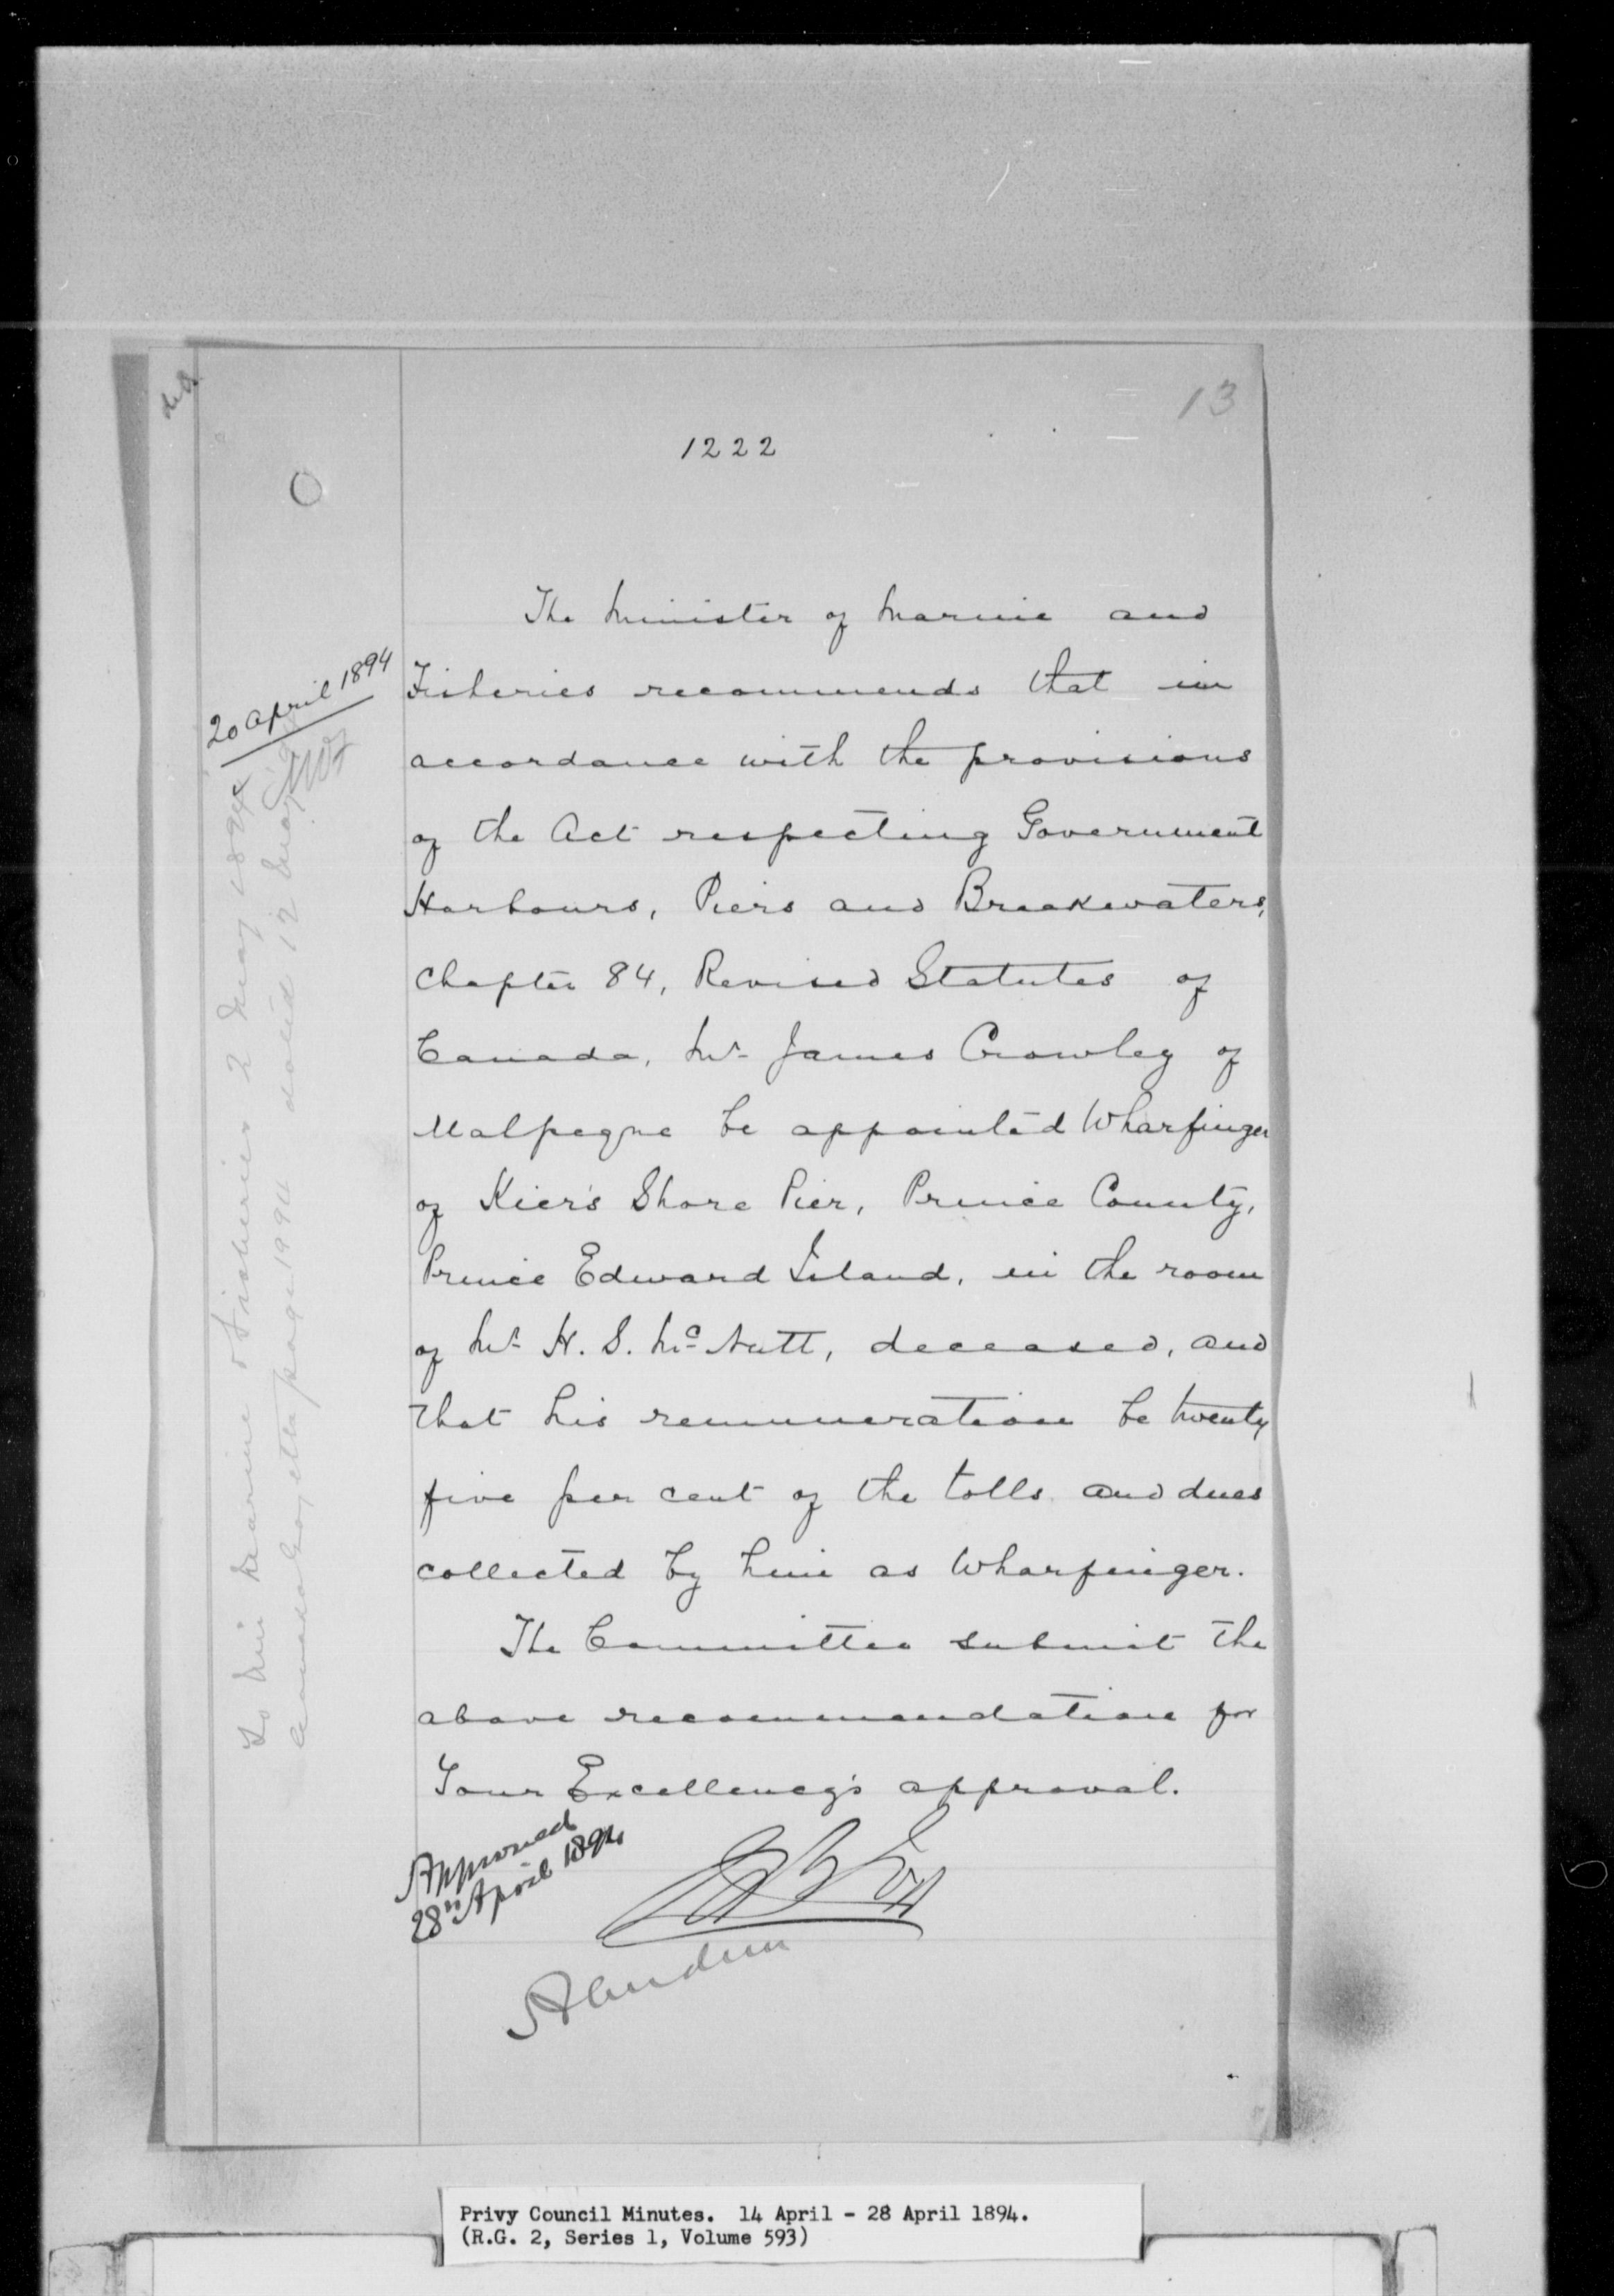 13
1222
The Minister of Marine and
Fisheries recommends that in
accordance with the provisions
of the Act respecting Government
Harbours, Piers and Breakwaters,
Chapter 84, Revised Statutes of
Canada, Mr. James Crowley of
Malpeque be appointed Wharfinger
of Kier's Shore Pier, Prince County,
Prince Edward Island, in the room
of Mr. H. S. McNutt, deceased, and
that his remuneration be twenty
five per cent of the tolls and dues
collected by him as Wharfinger.
The Committee submit the
above recommendation for
Your Excellency's approval.
20 April 1894
To Min Marine & Fisheries 2 May 1894
Canada Gazette page 1994 dated 12 May
Approved
28th April 1894
Aberdeen
Privy Council Minutes. 14 April - 28 April 1894.
(R.G. 2, Series 1, Volume 593)